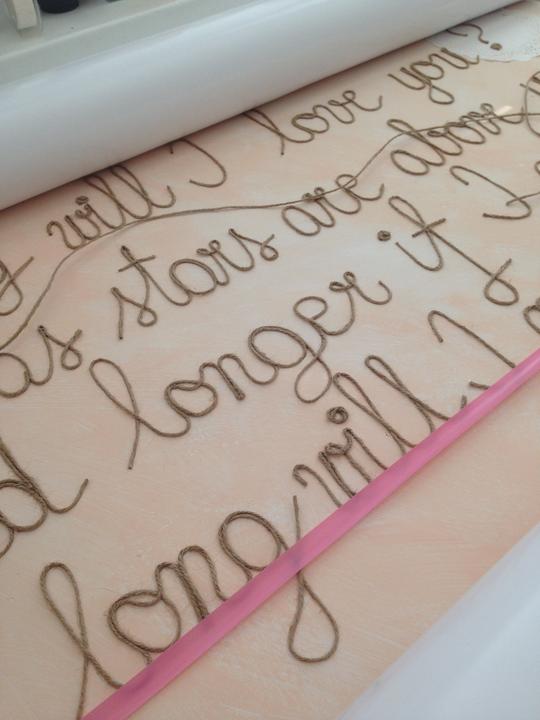 will I love you?
as stars are above
longer if I
long will I